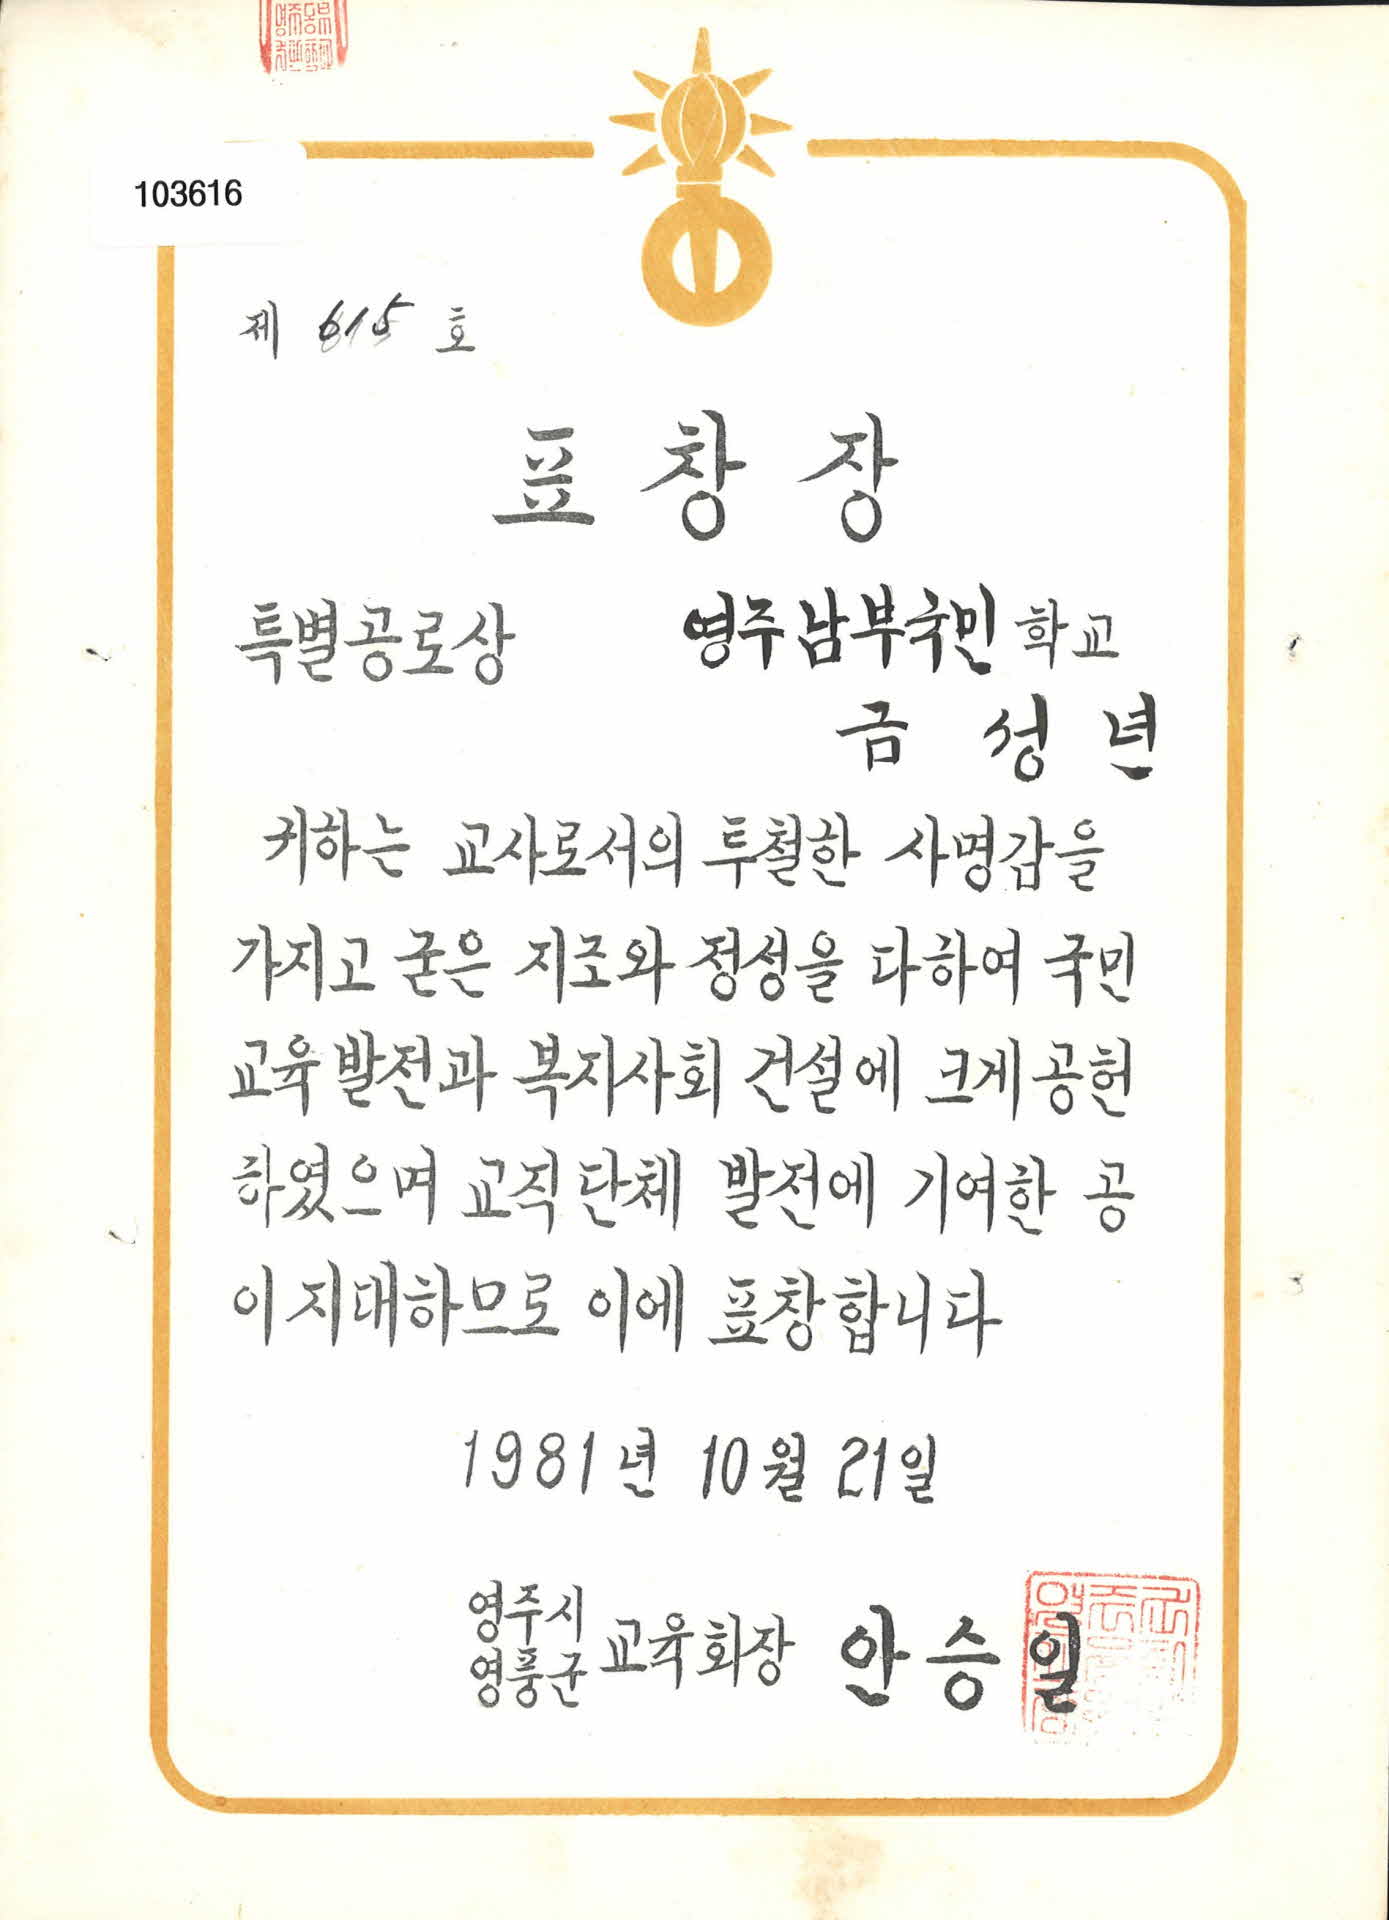 103616
제 615 호
표창장
특별공로상 영주남부국민학교
금성년
귀하는 교사로서의 투철한 사명감을
가지고 굳은 지조와 정성을 다하여 국민
교육발전과 복지사회 건설에 크게 공헌
하였으며 교직단체 발전에 기여한 공
이 지대하므로 이에 표창합니다
1981년 10월 21일
영주시
영풍군 교육회장 안승일